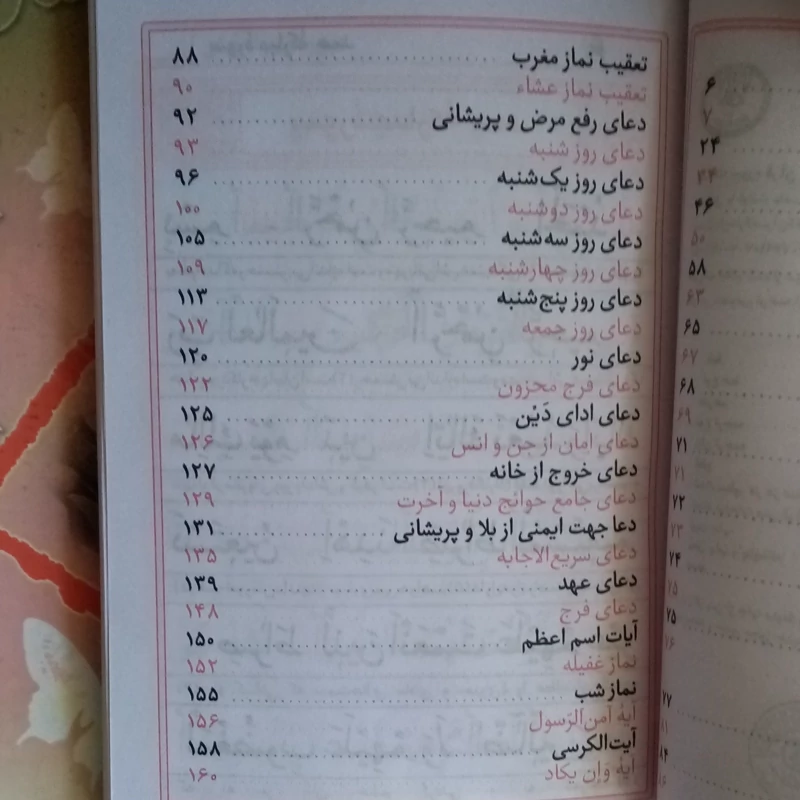 تعقیب نماز مغرب ۸۸
تعقیب نماز عشاء ۹۰
دعای رفع مرض و پریشانی ۹۲
دعای روز شنبه ۹۳
دعای روز یک‌شنبه ۹۶
دعای روز دوشنبه ۱۰۰
دعای روز سه‌شنبه ۱۰۵
دعای روز چهارشنبه ۱۰۹
دعای روز پنج‌شنبه ۱۱۳
دعای روز جمعه ۱۱۷
دعای نور ۱۲۰
دعای فرج محزون ۱۲۲
دعای ادای دَیْن ۱۲۵
دعای امان از جن و انس ۱۲۶
دعای خروج از خانه ۱۲۷
دعای جامع حوائج دنیا و آخرت ۱۲۹
دعا جهت ایمنی از بلا و پریشانی ۱۳۱
دعای سریع‌الاجابه ۱۳۵
دعای عهد ۱۳۹
دعای فرج ۱۴۸
آیات اسم اعظم ۱۵۰
نماز غفیله ۱۵۲
نماز شب ۱۵۵
آیهٔ امن‌الرّسول ۱۵۶
آیت‌الکرسی ۱۵۸
آیهٔ وَاِن یکاد ۱۶۰
۶
۷
۲۴
۳۴
۴۶
۵۰
۵۸
۶۳
۶۵
۶۷
۶۸
۶۹
۷۱
۷۱
۷۲
۷۳
۷۴
۷۵
۷۵
۷۷